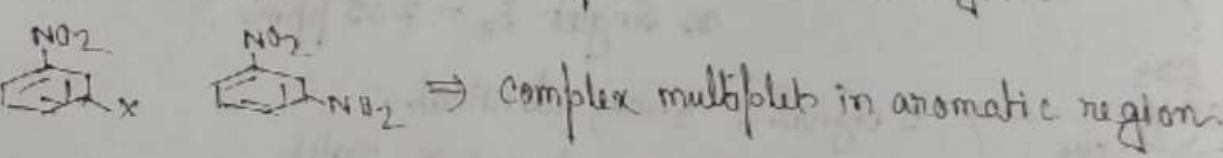 NO2 NO2
X NO2 ⇒ complex multiplets in aromatic region.